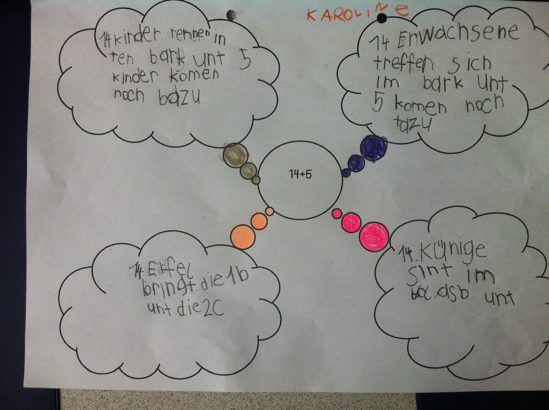 KAROLINE
14 Kinder rennen in
ten bark unt 5
kinder komen
noch bazu
14 Erwachsene
treffen sich
im bark unt
5 komen noch
tazu
14+5
14 Effel
bringt die 1b
unt die 2C
14 Künige
sint im
unt